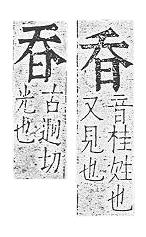 音桂姓也
又見也
昋
古迥切
光也